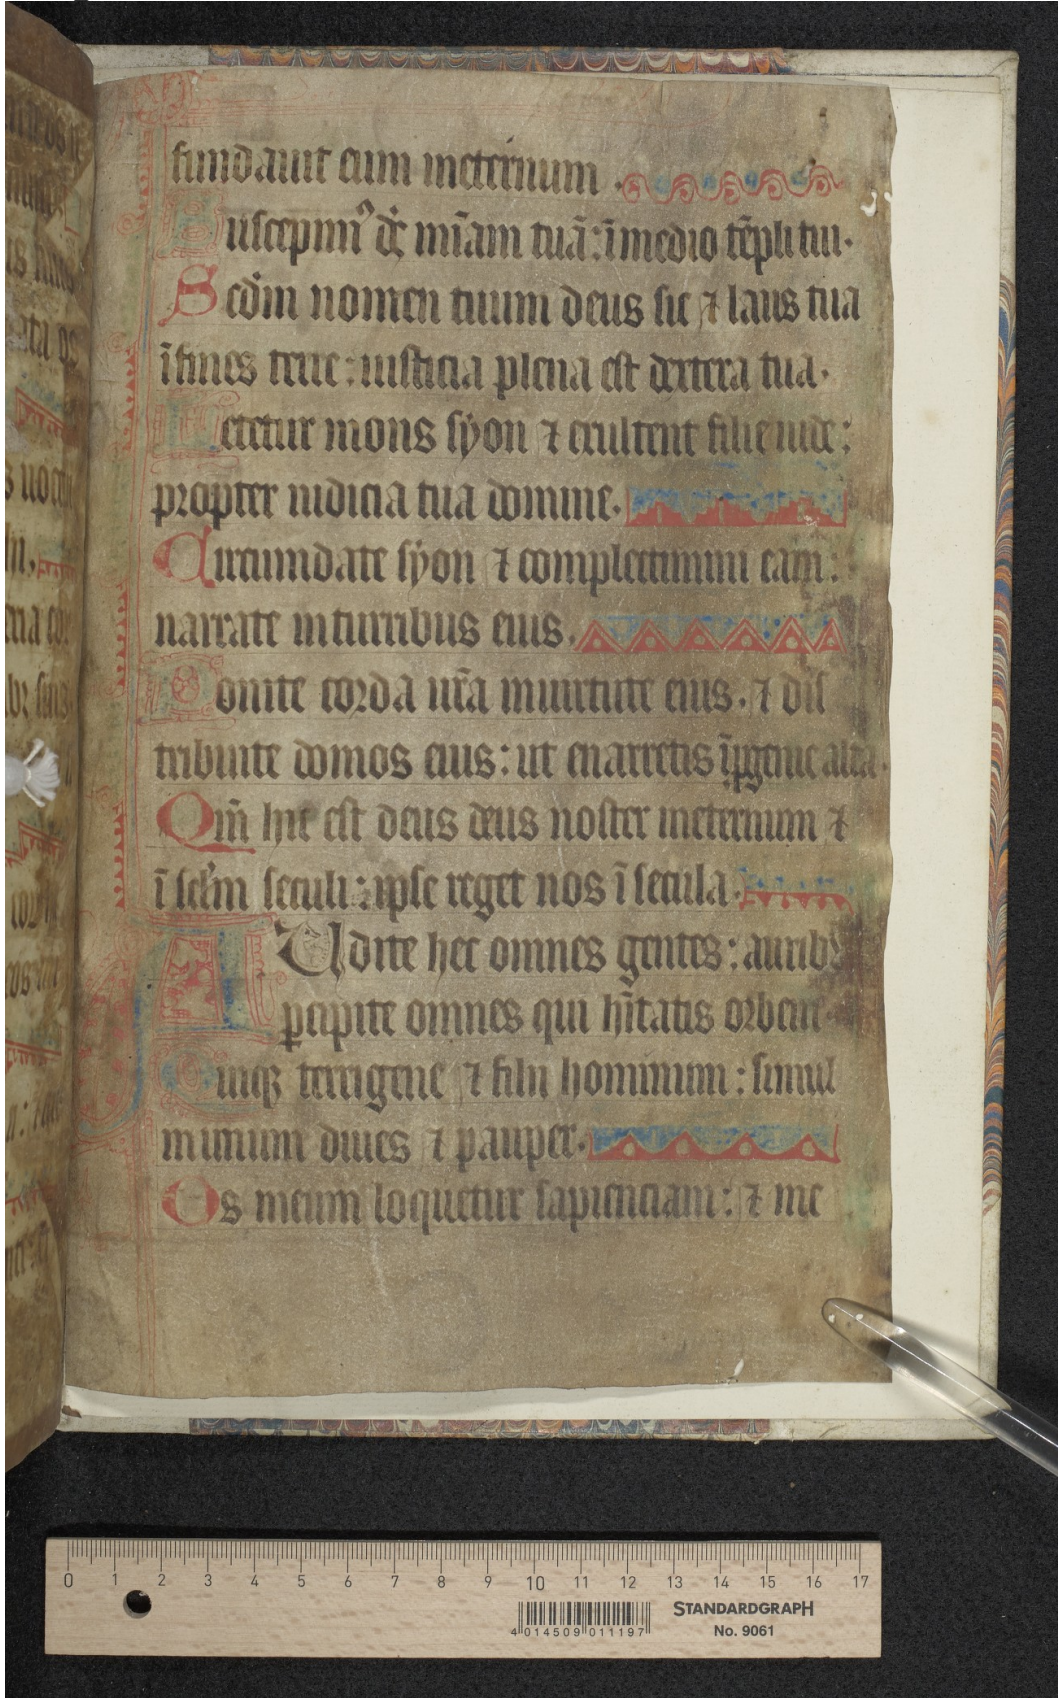 fundauit eum ineternum.
Suscepimꝰ dš mīam tuā: ī medio tēpli tui.
Scdm nomen tuum deus sic ⁊ laus tua
ī fines terre: iusticia plena est dextera tua.
Letetur mons syon ⁊ exultent filie iude:
propter iudicia tua domine.
Circumdate syon ⁊ complectimini eam:
narrate inturribus eius.
Ponite corda ur̄a inuirtute eius. ⁊ dis
tribuite domos eius: ut enarretis ī ꝓgenie altā.
Qm̄ hic est deus deus noster ineternum ⁊
ī sclm seculi: ipse reget nos ī secula.
AUdite hec omnes gentes: auribꝰ
ꝑcipite omnes qui hītatis orbem.
Quiqꝫ terrigene ⁊ filii hominum: simul
inunum diues ⁊ pauper.
Os meum loquetur sapienciam: ⁊ me
0 1 2 3 4 5 6 7 8 9 10 11 12 13 14 15 16 17
STANDARDGRAPH
No. 9061
4 014509 011197